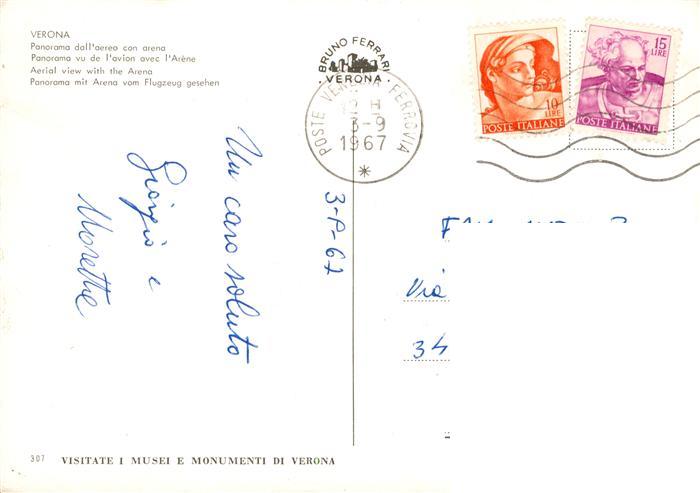 VERONA
Panorama dall'aereo con arena
Panorama vu de l'avion avec l'Arène
Aerial view with the Arena
Panorama mit Arena vom Flugzeug gesehen
BRUNO FERRARI
VERONA
POSTE VERONA FERROVIA
3-9
1967
10
LIRE
POSTE ITALIANE
15
LIRE
POSTE ITALIANE
Un caro saluto
Giorgio e
3-9-67
Via
34
307 VISITATE I MUSEI E MONUMENTI DI VERONA